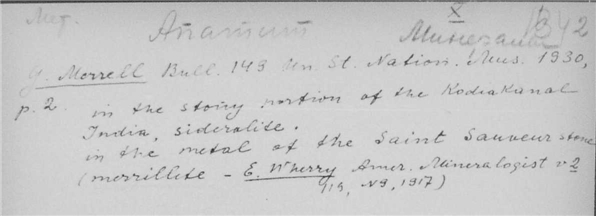 Мет. Апатит X 1342
Минералы
G. Morrell Bull. 149 Un. St. Nation. Mus. 1930,
p. 2. in the stony portion of the Kodiakanal
India, siderolite.
in the metal of the Saint Sauveur stone
(merrillite - E. Wherry Amer. Mineralogist v 2
N9, 1917)